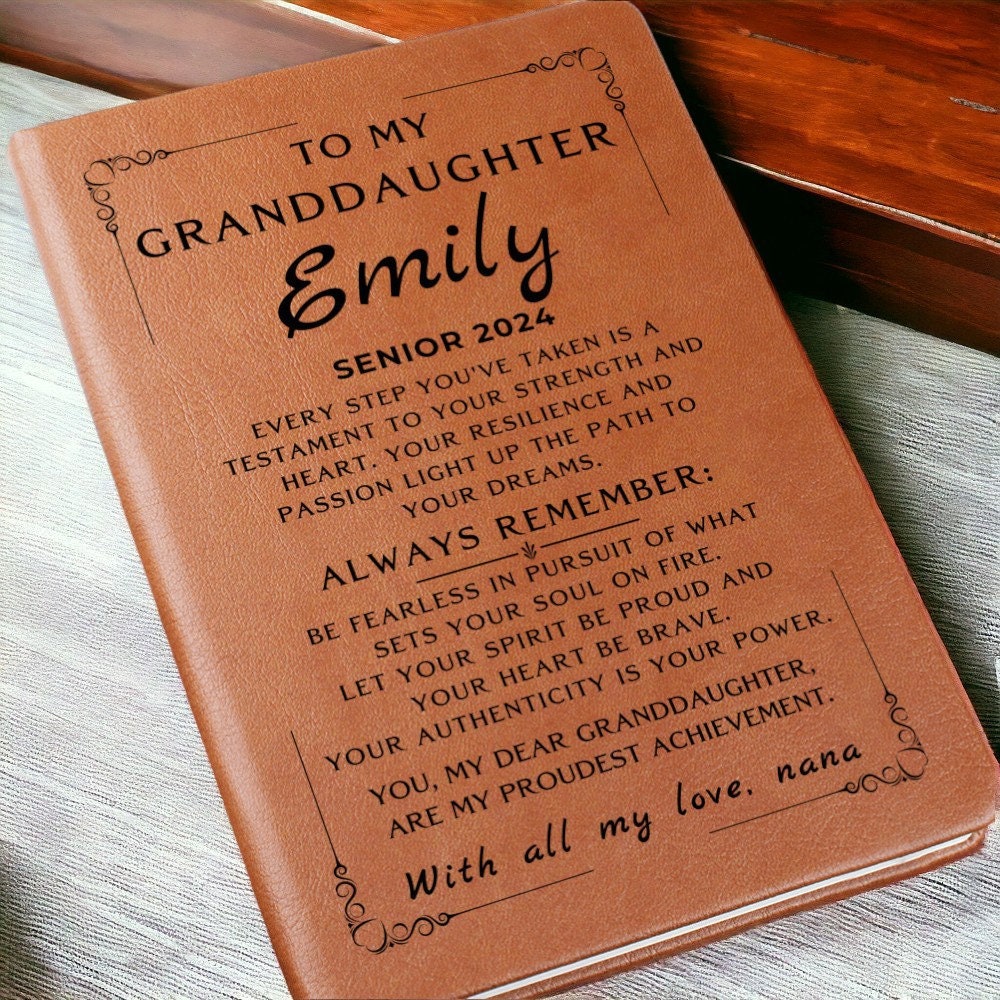 TO MY
GRANDDAUGHTER
Emily
SENIOR 2024
EVERY STEP YOU'VE TAKEN IS A
TESTAMENT TO YOUR STRENGTH AND
HEART. YOUR RESILIENCE AND
PASSION LIGHT UP THE PATH TO
YOUR DREAMS.
ALWAYS REMEMBER:
BE FEARLESS IN PURSUIT OF WHAT
SETS YOUR SOUL ON FIRE.
LET YOUR SPIRIT BE PROUD AND
YOUR HEART BE BRAVE.
YOUR AUTHENTICITY IS YOUR POWER.
YOU, MY DEAR GRANDDAUGHTER,
ARE MY PROUDEST ACHIEVEMENT.
With all my love, nana